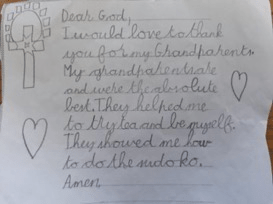 Dear God,
I would love to thank
you for my Grandparents.
My grandparents are
and were the absolute
best. They helped me
to try tea and be myself.
They showed me how
to do the sudoko.
Amen.